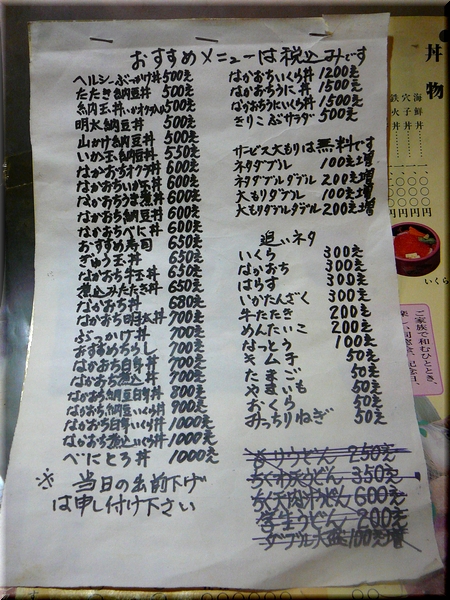 おすすめメニューは税込みです
ヘルシーぶっかけ丼 500円
たたき納豆丼 500円
納玉丼いかオクラめん 500円
明太納豆丼 500円
山かけ納豆丼 500円
いか玉納豆丼 550円
なかおちオクラ丼 600円
なかおちいか玉丼 600円
なかおちうま煮丼 600円
なかおち納豆丼 600円
なかおちべに丼 600円
おすすめ寿司 650円
ぎゅう玉丼 650円
なかおち牛玉丼 650円
煮込みたたき丼 650円
なかおち丼 680円
なかおち明太丼 700円
ぶっかけ丼 700円
おすすめちらし 700円
なかおち白年丼 700円
なかおち煮込丼 700円
なかおち納豆白年丼 800円
なかおち納豆いくら丼 900円
なかおち白年いくら丼 1000円
なかおち煮込いくら丼 1000円
べにとろ丼 1000円
※ 当日の名前下げ
は申し付け下さい
なかおちいくら丼 1200円
なかおちうに丼 1500円
なかおちうにいくら丼 1500円
きりこぶサラダー 500円
サービス大もりは無料です
ネタダブル 100円増
ネタダブルダブル 200円増
大もりダブル 100円増
大もりダブルダブル 200円増
追いネタ
いくら 300円
なかおち 300円
はらす 300円
いかたんざく 300円
牛たたき 200円
めんたいこ 200円
なっとう 100円
キムチ 50円
たまご 50円
やまいも 50円
おくら 50円
みっちりねぎ 50円
うどん 250円
ちくわ天うどん 350円
ちく天肉うどん 600円
学生うどん 200円
ダブル大盛 100円増
丼物
海鮮丼
穴子丼
鉄火丼
いくら
ご家族で和むひととき、